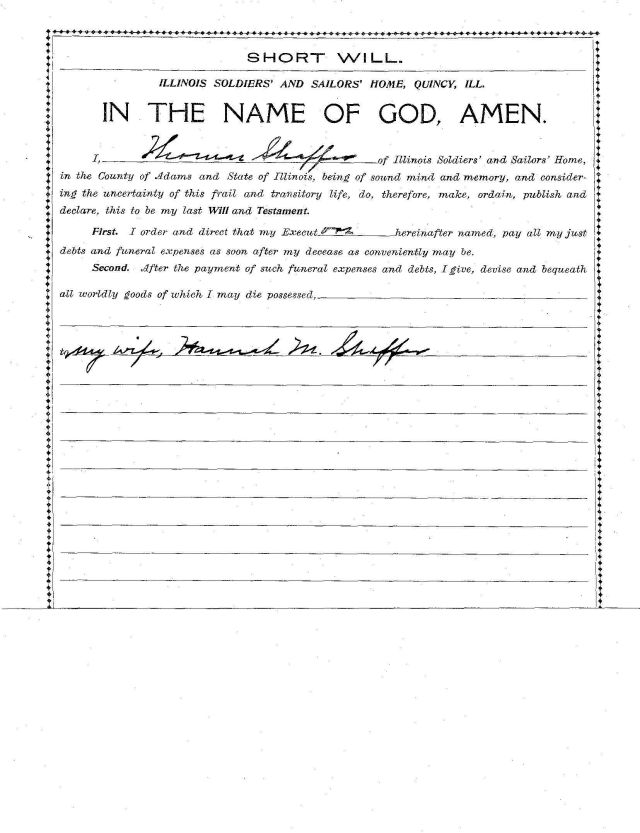 SHORT WILL.
ILLINOIS SOLDIERS' AND SAILORS' HOME, QUINCY, ILL.
IN THE NAME OF GOD, AMEN.
I, Thomas Shaffer of Illinois Soldiers' and Sailors' Home,
in the County of Adams and State of Illinois, being of sound mind and memory, and consider-
ing the uncertainty of this frail and transitory life, do, therefore, make, ordain, publish and
declare, this to be my last Will and Testament.
First. I order and direct that my Execut hereinafter named, pay all my just
debts and funeral expenses as soon after my decease as conveniently may be.
Second. After the payment of such funeral expenses and debts, I give, devise and bequeath
all worldly goods of which I may die possessed,
to my wife, Hannah M. Shaffer